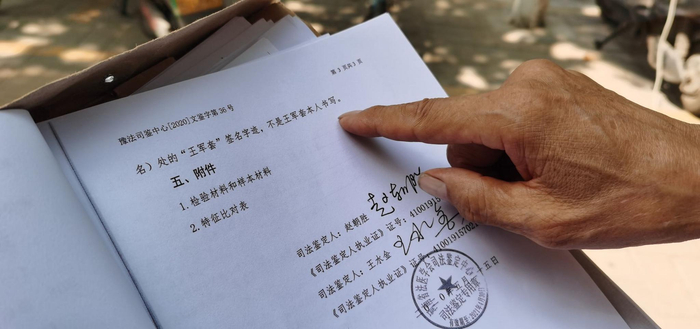 第 3 页共 3 页
豫法司鉴中心[2020]文鉴字第 36 号
名）处的“王军奎”签名字迹，不是王军奎本人书写。
五、附件
1.检验材料和样本材料
2.特征比对表
司法鉴定人：赵朝胜
《司法鉴定人执业证》证号：41001915
司法鉴定人：王水金
《司法鉴定人执业证》证号：410019157022
十五日
法医学会司法鉴定中心
司法鉴定专用章